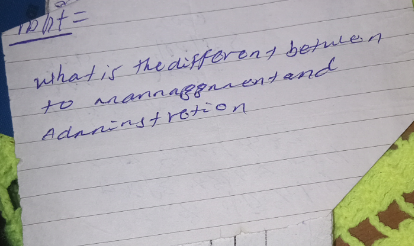 what is the different between
to mannaggment and
Adminstretion